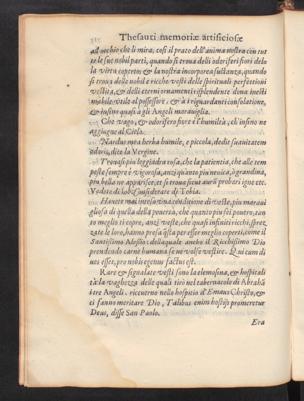 Thesauri memoriæ artificiosæ
ad occhio che li mira; così il prato dell'anima nostra con tut
te le sue nobil parti, quando si trova delli odoriferi fiori della
la virtù coperto; & la nostra incorporea sustanza, quando
si trova delle nobili e ricche vesti delle spirituali perfettioni
vestita, & delli eterni ornamenti risplendente dona inesti
mabile utile al possessore, & à i riguardanti consolatione,
& insino quasi à gli Angeli maraviglia.
Che vago, & odorifero fiore è l'humiltà, ch'insino ne
aggiugne al Cielo.
Nardus mea herba humile, e piccola, dedit suavitatem
odoris, dice la Vergine.
Trovasi più leggiadra rosa, che la patientia, che alle tem
peste sempre è vigorosa, anzi quanto più nevica, ò grandina,
più bella ne apparisce, et si trova sicut auris probari igne etc.
Vedete di Iob l'anima, state di Tobia.
Havete mai intesa una conditione di veste, più maravi
gliosa di quella della povertà, che quanto più sei povero, tan
to meglio ti copre, anzi veste, che quasi infiniti ricchi sprez
zate le loro, hanno presa questa per esser meglio coperti, come il
Santissimo Alessio: della quale anche il Ricchissimo Dio
prendendo carne humana se ne volse vestire. Qui cum di
ves esset, pro nobis egenus factus est.
Rare & signalate vesti sono la elemosina, & hospitali
tà: la vaghezza delle quali tirò nel tabernacolo di Abraha
tre Angeli. ricevero nello hospitio d'Emaus Christo, &
ci fanno meritare Dio, Talibus enim hostijs promeretur
Deus, disse San Paolo.
Era